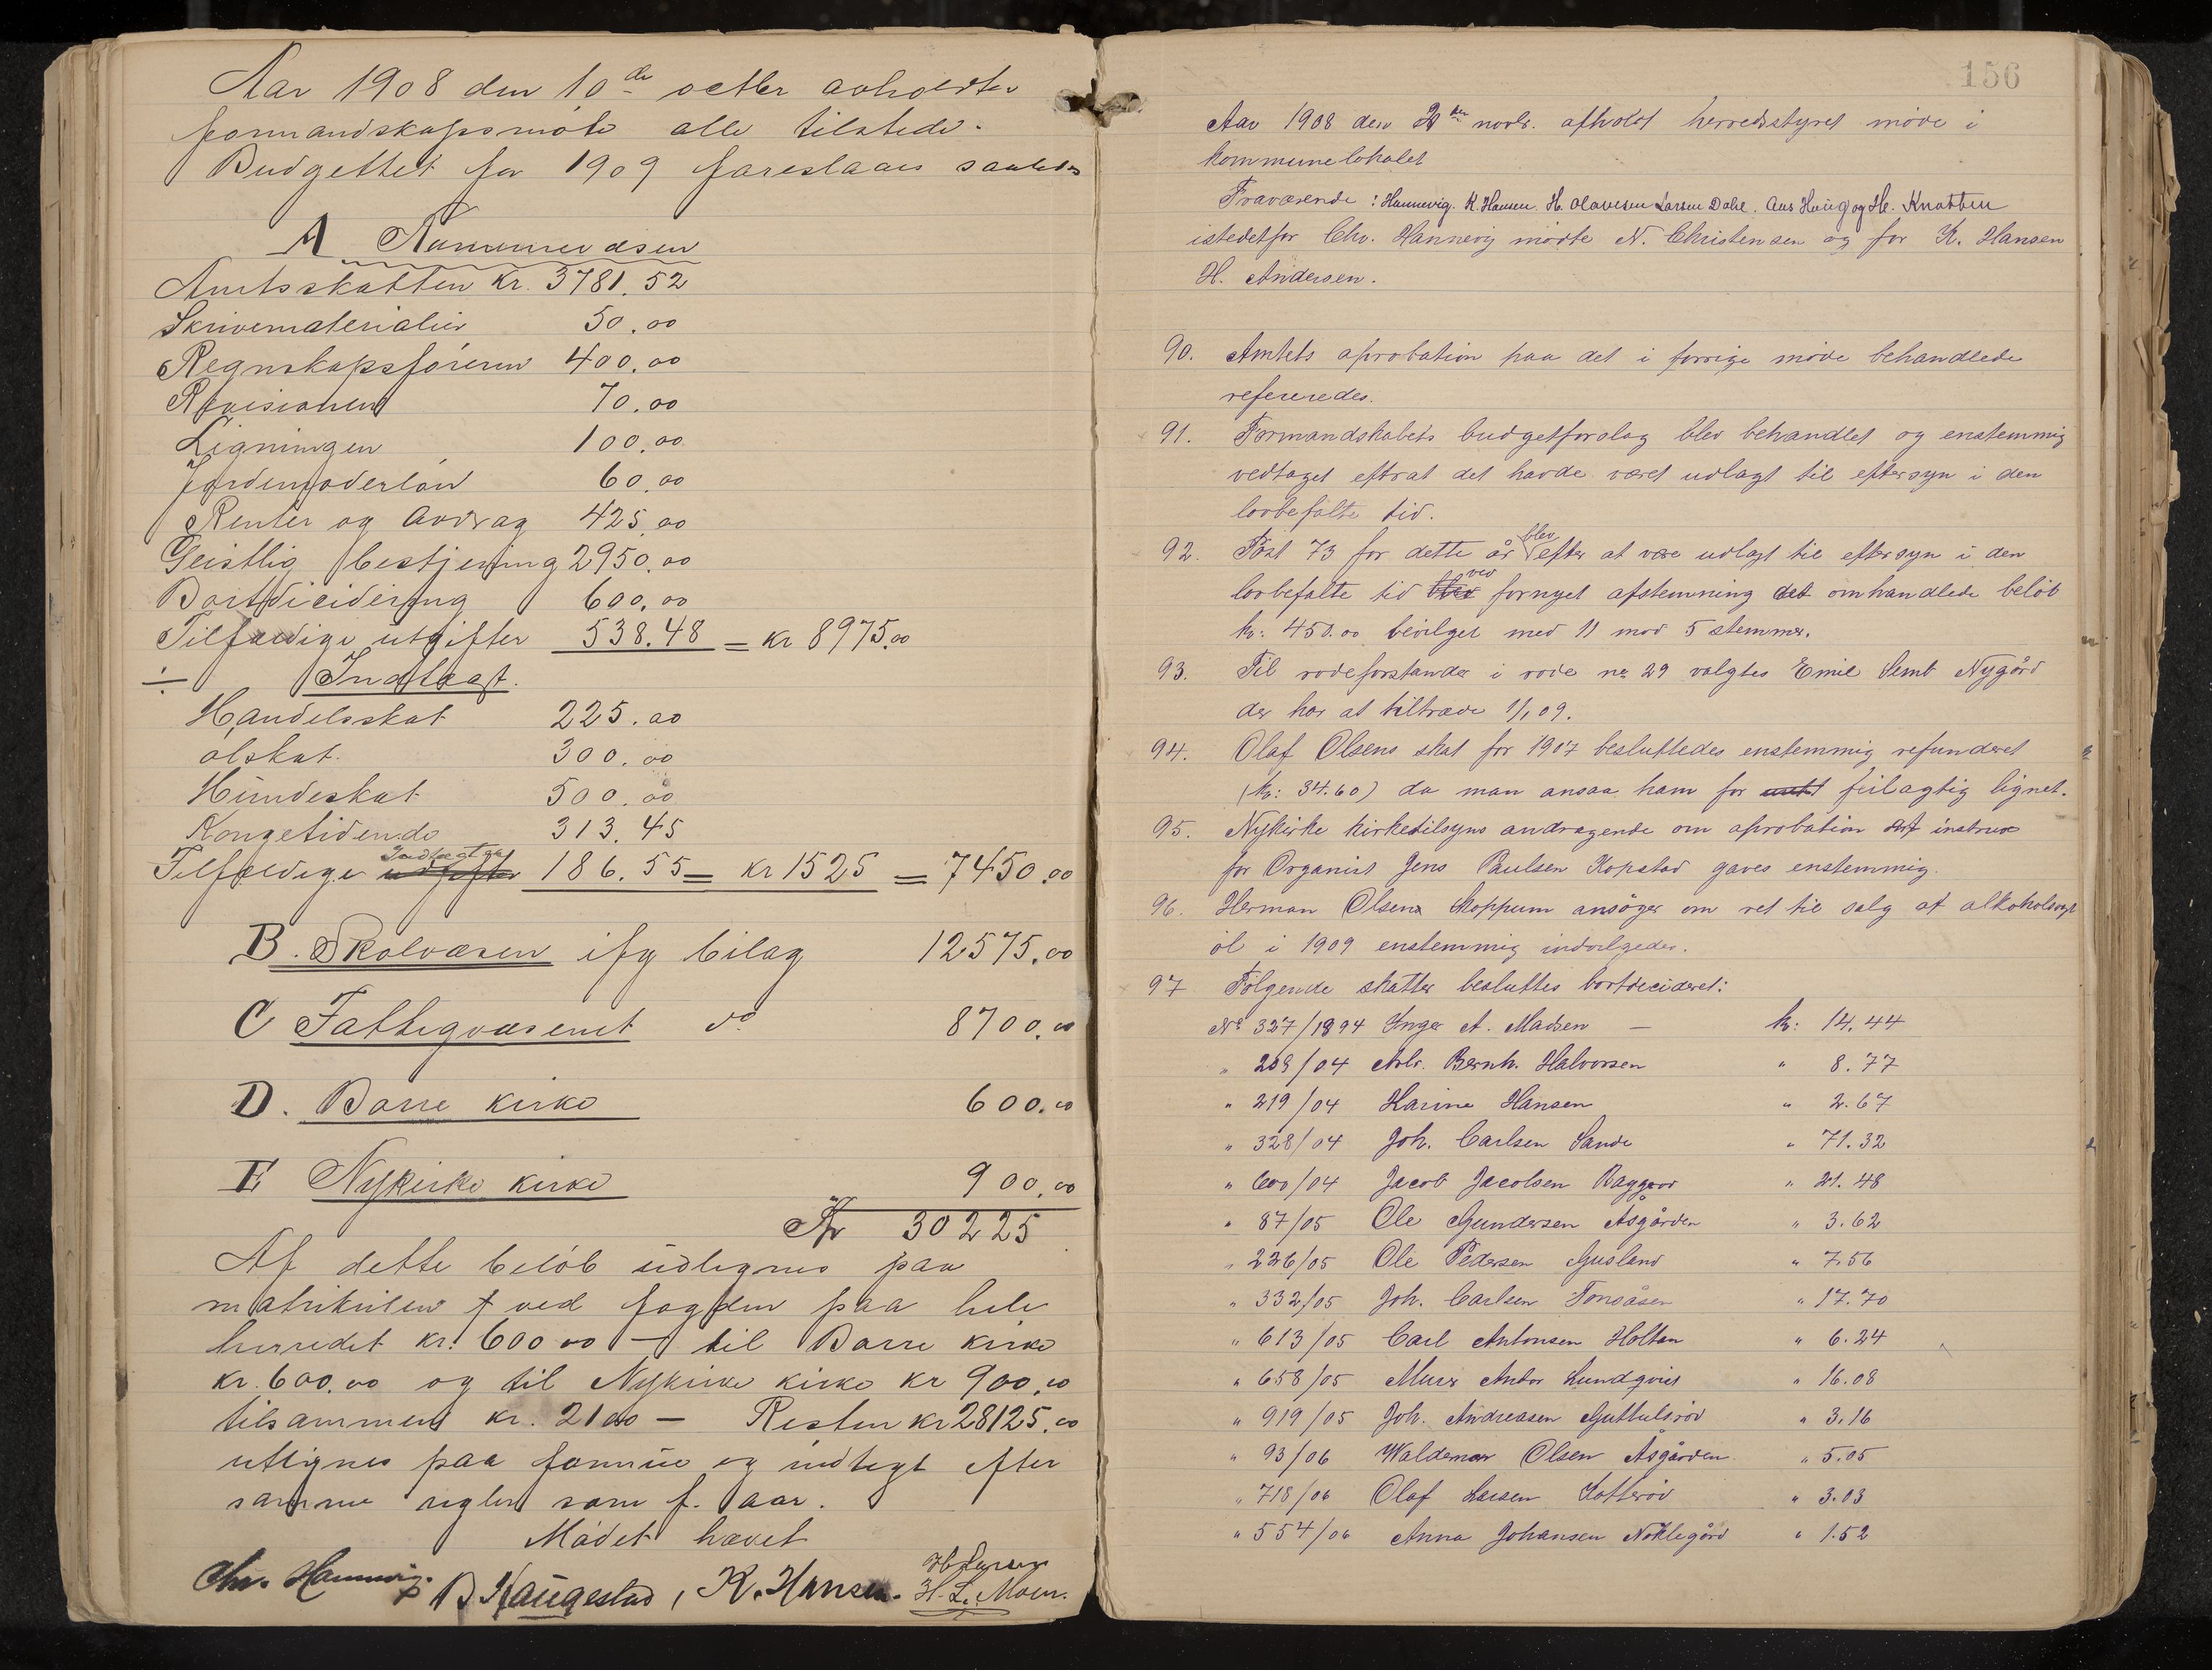 Aar 1908 den 10de octbr avholdtes
formandskapsmöte alle tilstede.
Budgettet for 1909 foreslaaes saaledes
A Kommunecasen
Amtsskatten kr. 3781.52
Skrivematerialier 50.00
Regnskapsföreren 400.00
Revisionen 70.00
Ligningen 100.00
Jordemoderlön 60.00
Renter og Avdrag 425.00
Geistlig bestjening 2950.00
Bortdicidering 600.00
Tilfældige utgifter 538.48 = kr 8975.00
÷ Indtægt.
Handelsskat 225.00
ölskat. 300.00
Hundeskat 500.00
Kongetiende 313.45
Tilfældige Indtægter udgifter 186.55 = kr 1525 = 7450.00
B. Skolvæsen ifg bilag 12575.00
C Fattigvæsenet do 8700.00
D. Borre kirke 600.00
E Nykirke kirke 900.00
Kr 30225
Af dette belöb udlignes paa
matrikulen ved fogden paa hele
herredet kr. 600 00 — til Borre kirke
kr. 600.00 og til Nykirke kirke kr 900.00
tilsammen kr. 2100 — Resten kr 28125.00
utlignes paa formue og indtegt efter
samme regler som f. aar.
Mödet hævet
Chr. Hannevig. B. Haugestad, K. Hansen. H Larsen
H. L. Moen.
156
Aar 1908 den novbr. afholdt herredsstyret möde i
kommunelokalet
Fraværende: Hannevig. K. Hansen. H. Olavesen Larsen Dahl. Ans Haug og H. Knatten
istedetfor Chr. Hannevig mödte N. Christensen og for K. Hansen
H. Andersen.
90. Amtets aprobation paa det i forrige möde behandlede
refereredes.
91. Formandskabets budgetforslag blev behandlet og enstemmig
vedtaget eftrat det havde været udlagt til eftersyn i den
lovbefalte tid.
92. Post 73 for dette år blev efter at være udlagt til eftersyn i den
lovbefalte tid blev ved fornyet afstemning det omhandlede belöb
kr: 450.00 bevilget med 11 mod 5 stemmer.
93. Til rodeforstander i rode no 29 valgtes Emil Semb Nygård
der har at tiltræde 1/1 09.
94. Olaf Olsens skat for 1907 besluttedes enstemmig refunderet
(kr: 34.60) da man ansaa ham for feilagtig lignet.
95. Nykirke kirketilsyns andragende om aprobation af instrux
for Organist Jens Paulsen Kopstad gaves enstemmig.
96. Herman Olsen Skoppum ansöger om ret til salg af alkoholsvagt
öl i 1909 enstemmig indvilgedes.
97 Fölgende skatter besluttes bortdecideret:
No 327/1894 Inger A. Madsen — kr: 14.44
" 209/04 Arb. Bernh. Halvorsen " 8.77
" 219/04 Karine Hansen " 2.67
" 328/04 Joh. Carlsen Sande " 71.32
" 600/04 Jacob Jacobsen Baggerød " 21.48
" 87/05 Ole Gundersen Åsgården " 3.62
" 226/05 Ole Pedersen Gusland " 7.56
" 332/05 Joh. Carlsen Tonsåsen " 17.70
" 613/05 Carl Antonsen Holtan " 6.24
" 658/05 Murer Andor Lundqvist " 16.08
" 919/05 Joh. Andreasen Guttulsröd " 3.16
" 93/06 Waldemar Olsen Åsgården " 5.05
" 718/06 Olaf Larsen Sotteröd " 3.03
" 554/06 Anna Johansen Nöklegård " 1.52